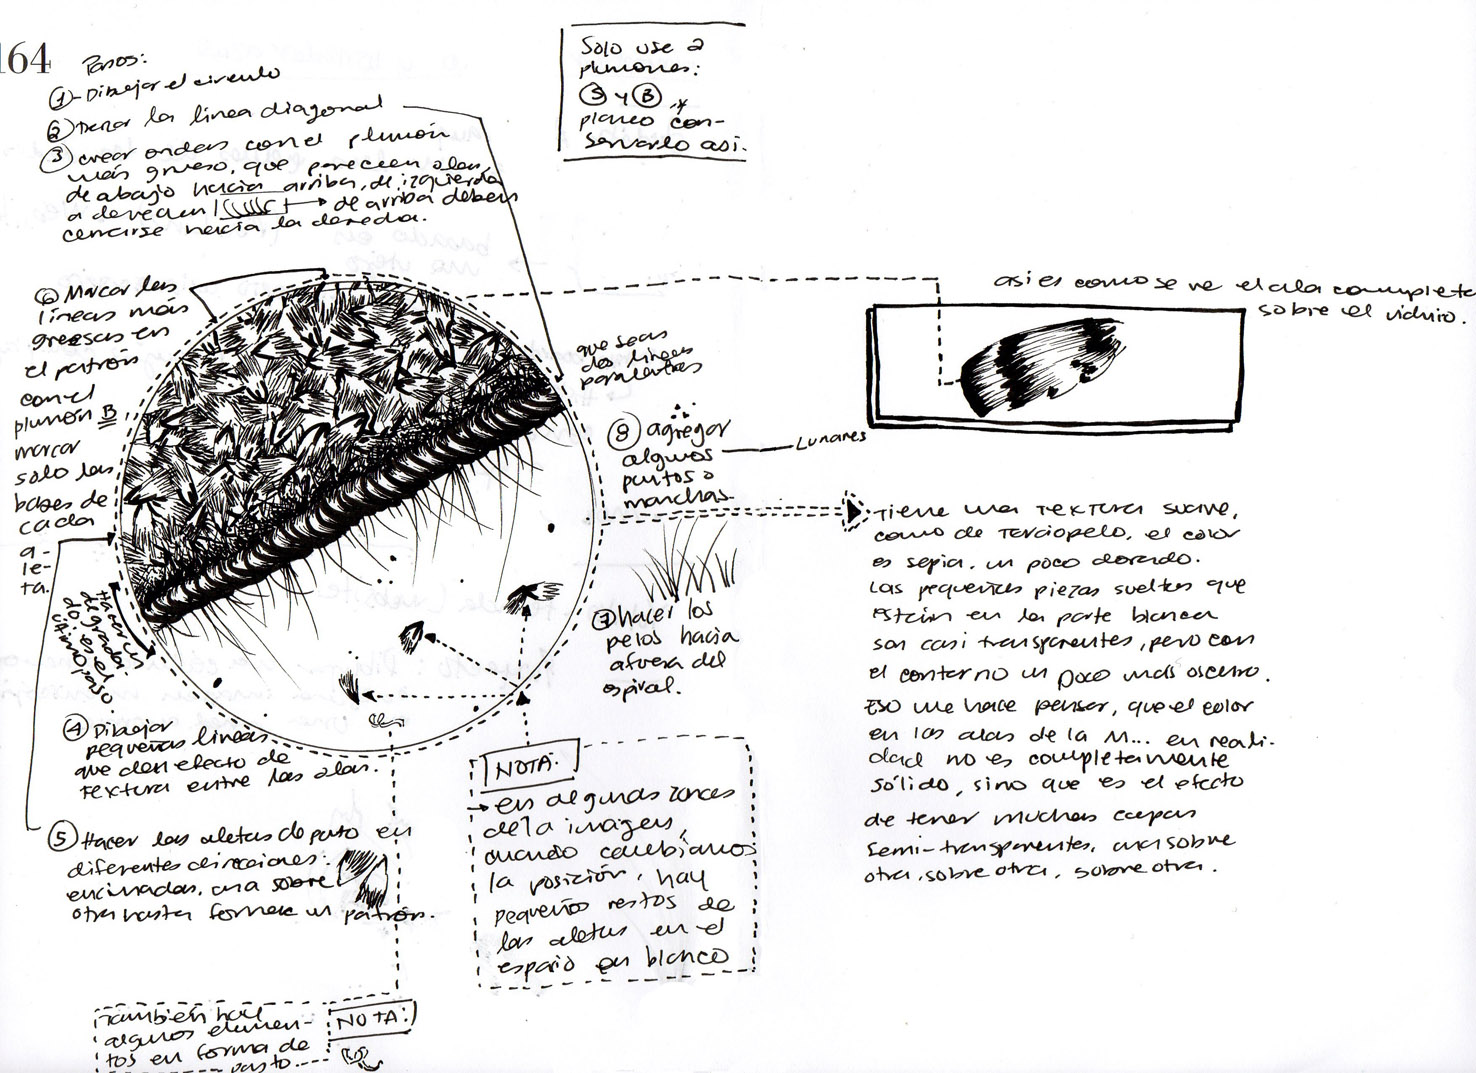 164
Pasos:
1 - Dibujar el circulo
2 Trazar la linea diagonal
3 crear ondas con el plumón
más grueso, que parecen olas,
de abajo hacia arriba, de izquierda
a derecha → de arriba deben
cerrarse hacia la derecha.
Solo use 2
plumones:
S y B
planeo con-
servarlo asi.
6 Marcar las
líneas más
gruesas en
el patrón
con el
plumón B,
marcar
solo las
bases de
cada
a-
le-
ta.
que sean
dos lineas
paralelas
8 agregar
algunos
puntos o
manchas.
Lunares
asi es como se ve el ala completa
sobre el vidrio.
Hacer un
degrada-
do, es el
último paso.
7 hacer los
pelos hacia
afuera del
espiral.
Tiene una textura suave,
como de terciopelo, el color
es sepia, un poco dorado.
Las pequeñas piezas sueltas que
están en la parte blanca
son casi transparentes, pero con
el contorno un poco más oscuro.
Eso me hace pensar, que el color
en las alas de la M... en reali-
dad no es completamente
sólido, sino que es el efecto
de tener muchas capas
semi-transparentes, una sobre
otra, sobre otra, sobre otra.
4 Dibujar
pequeñas lineas
que den efecto de
textura entre las alas.
5 Hacer las aletas de pato en
diferentes direcciones.
encimadas, una sobre
otra hasta formar un patrón.
NOTA:
en algunas zonas
de la imagen,
cuando cambiamos
la posición, hay
pequeños restos de
las aletas en el
espacio en blanco
También hay
algunos elemen-
tos en forma de
pasto.
NOTA: